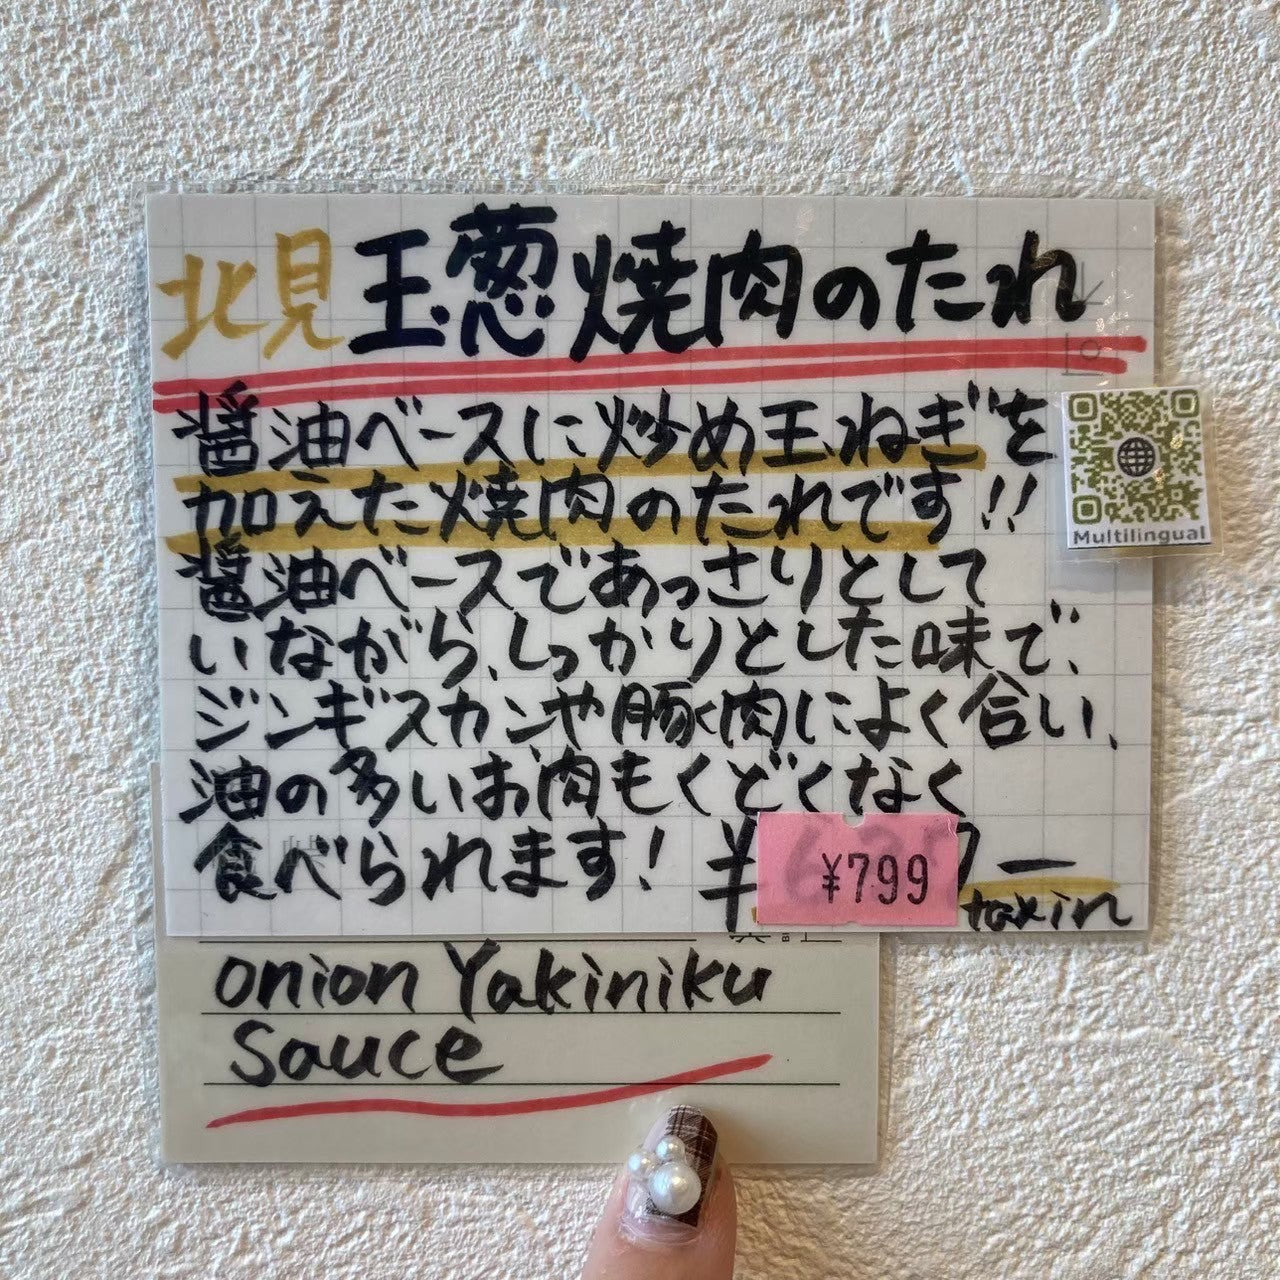 北見玉葱焼肉のたれ
醤油ベースに炒め玉ねぎを
加えた焼肉のたれです!!
醤油ベースであっさりとして
いながら、しっかりとした味で、
ジンギスカンや豚肉によく合い、
油の多いお肉もくどくなく
食べられます!
¥799
taxin
Multilingual
onion Yakiniku
Sauce